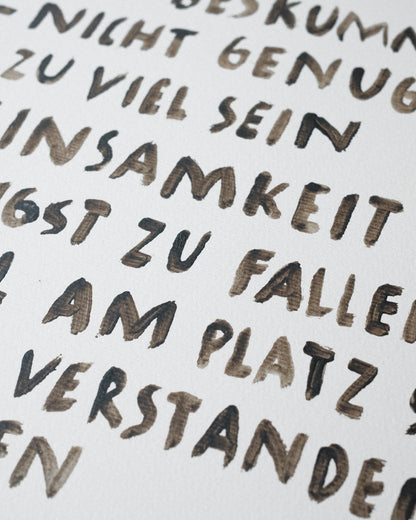 NICHT GENUG
ZU VIEL SEIN
EINSAMKEIT
ZU FALLE
AM PLATZ
VERSTANDE
EN